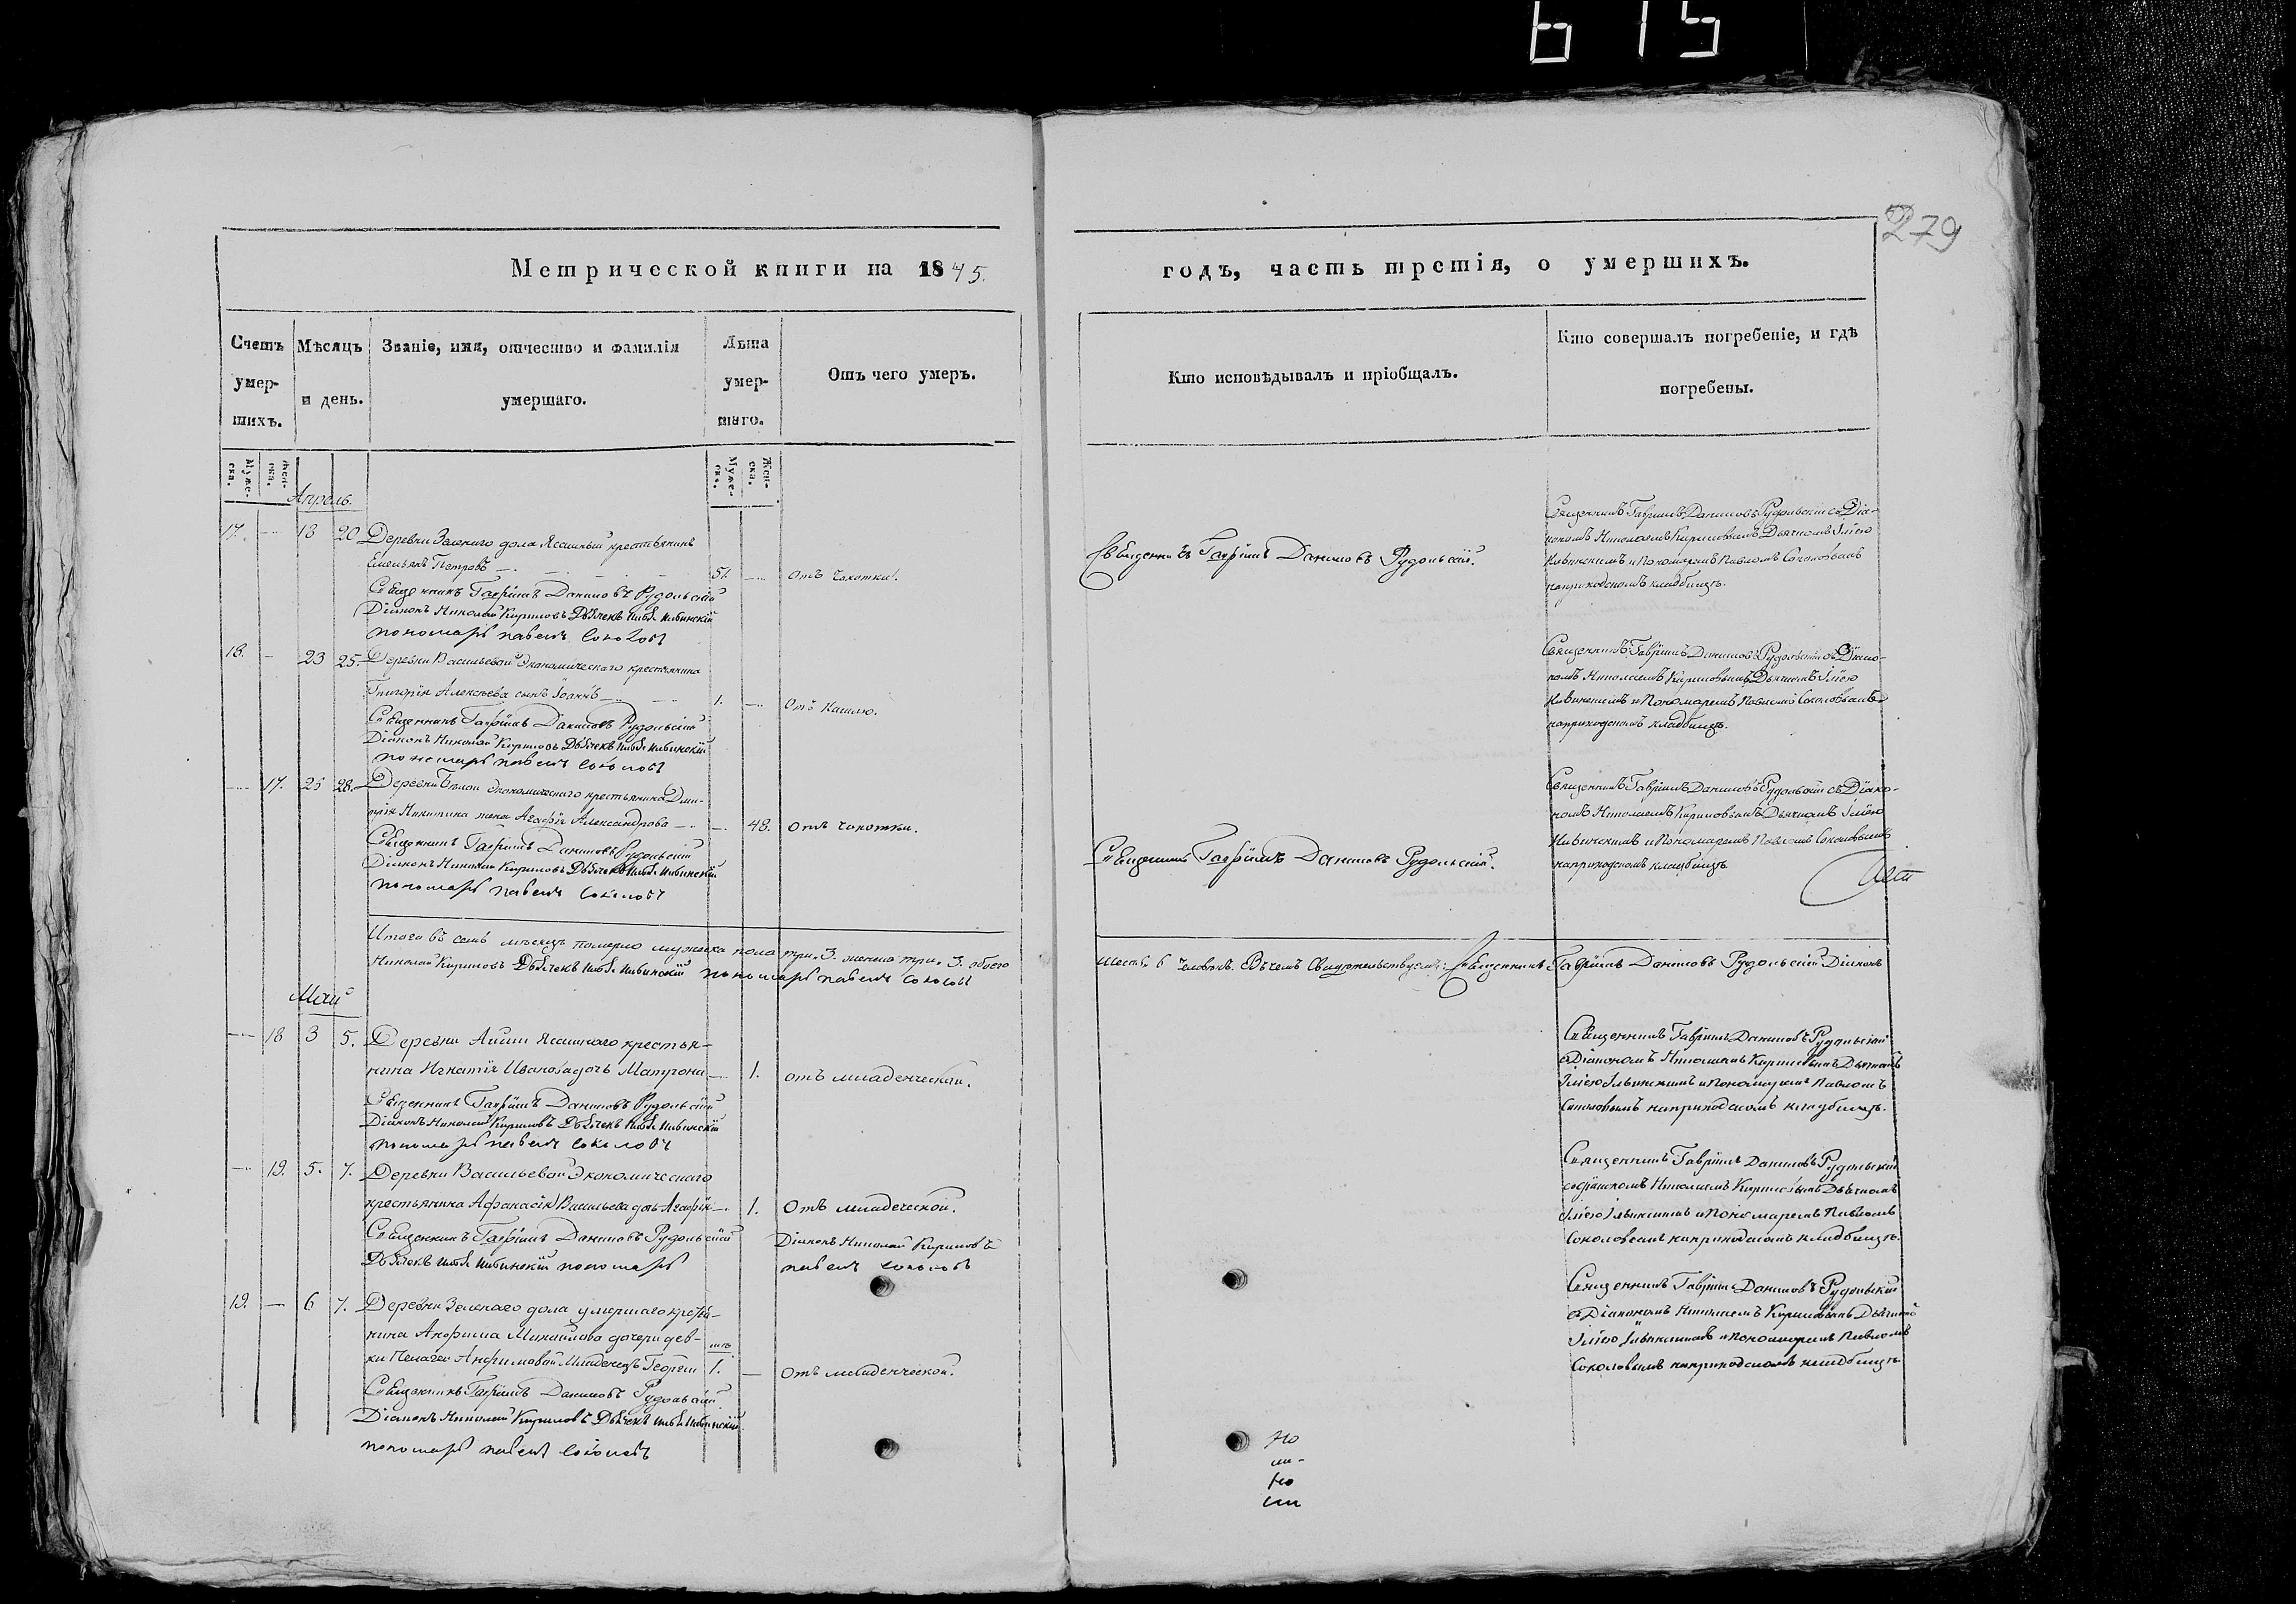 615
279
Метрической книги на 1845.
годъ, часть третія, о умершихъ.
Счетъ умер-шихъ.
Мѣсяцъ и день.
Званіе, имя, отчество и фамилія умершаго.
Лѣта умер-шаго.
Отъ чего умеръ.
Кто исповѣдывалъ и пріобщалъ.
Кто совершалъ погребеніе, и гдѣ погребены.
Муже-ска.
Жен-ска.
Муже-ска.
Жен-ска.
Апрель.
17. 18 20 Деревни Зеленаго дола Ясашный крестьянинъ
Емельянъ Петровъ 51. отъ чахотки.
Священникъ Гавріилъ Даниловъ Рудольскій
Діаконъ Николай Кириловъ Дьячекъ
пономарь павелъ Соколовъ
Священникъ Гавріилъ Даниловъ Рудольскій.
Священникъ Гавріилъ Даниловъ Рудольскій съ Діа-
кономъ Николаемъ Кириловымъ Дьячкомъ Ильею
и Пономаремъ Павломъ Соколовымъ
на приходскомъ кладбищѣ.
18. 23 25. Деревни Васильевой Экономическаго крестьянина
Григорія Алексѣева сынъ Іоаннъ 1. Отъ Кашлю.
Священникъ Гавріилъ Даниловъ Рудольскій
Діаконъ Николай Кириловъ Дьячекъ
пономарь павелъ Соколовъ
Священникъ Гавріилъ Даниловъ Рудольскій съ Діако-
номъ Николаемъ Кириловымъ Дьячкомъ Ильею
и Пономаремъ Павломъ Соколовымъ
на приходскомъ кладбищѣ.
17. 25 28. Деревни Бѣлой Экономическаго крестьянина Дми-
трія Никитина жена Агафія Александрова 48. отъ чахотки.
Священникъ Гавріилъ Даниловъ Рудольскій
Діаконъ Николай Кириловъ Дьячекъ
пономарь павелъ Соколовъ
Священникъ Гавріилъ Даниловъ Рудольскій.
Священникъ Гавріилъ Даниловъ Рудольскій съ Діако-
номъ Николаемъ Кириловымъ Дьячкомъ Ильею
и Пономаремъ Павломъ Соколовымъ
на приходскомъ кладбищѣ.
Итого въ семъ мѣсяцѣ померло мужеска пола три. 3. женска три. 3. обоего
шесть 6 человѣкъ. Въ чемъ Свидѣтельствуемъ: Священникъ Гавріилъ Даниловъ Рудольскій Діаконъ
Николай Кириловъ Дьячекъ пономарь павелъ Соколовъ
Май
18 3 5. Деревни Айши Ясашнаго крестья-
нина Игнатія Иванова дочь Матрона 1. отъ младенческой.
Священникъ Гавріилъ Даниловъ Рудольскій
Діаконъ Николай Кириловъ Дьячекъ
пономарь павелъ Соколовъ
Священникъ Гавріилъ Даниловъ Рудольскій
съ Діакономъ Николаемъ Кириловымъ Дьячкомъ
Ильею и Пономаремъ Павломъ
Соколовымъ на приходскомъ кладбищѣ.
19. 5. 7. Деревни Васильевой Экономическаго
крестьянина Афанасія Васильева дочь Агафія 1. Отъ младеческой.
Священникъ Гавріилъ Даниловъ Рудольскій Діаконъ Николай Кириловъ
Дьячекъ пономарь павелъ Соколовъ
Священникъ Гавріилъ Даниловъ Рудольскій
съ діакономъ Николаемъ Кириловымъ Дьячкомъ
Ильею и Пономаремъ Павломъ
Соколовымъ на приходскомъ кладбищѣ.
19. 6 7. Деревни Зеленаго дола умершаго крестья-
нина Анфима Михайлова дочери дев-
ки Пелагеи Анфимовой Младенецъ Георгій 1. Отъ младенческой.
Священникъ Гавріилъ Даниловъ Рудольскій
Діаконъ Николай Кириловъ Дьячекъ
пономарь павелъ Соколовъ
Священникъ Гавріилъ Даниловъ Рудольскій
съ Діакономъ Николаемъ Кириловымъ Дьячкомъ
Ильею и пономаремъ Павломъ
Соколовымъ на приходскомъ кладбищѣ